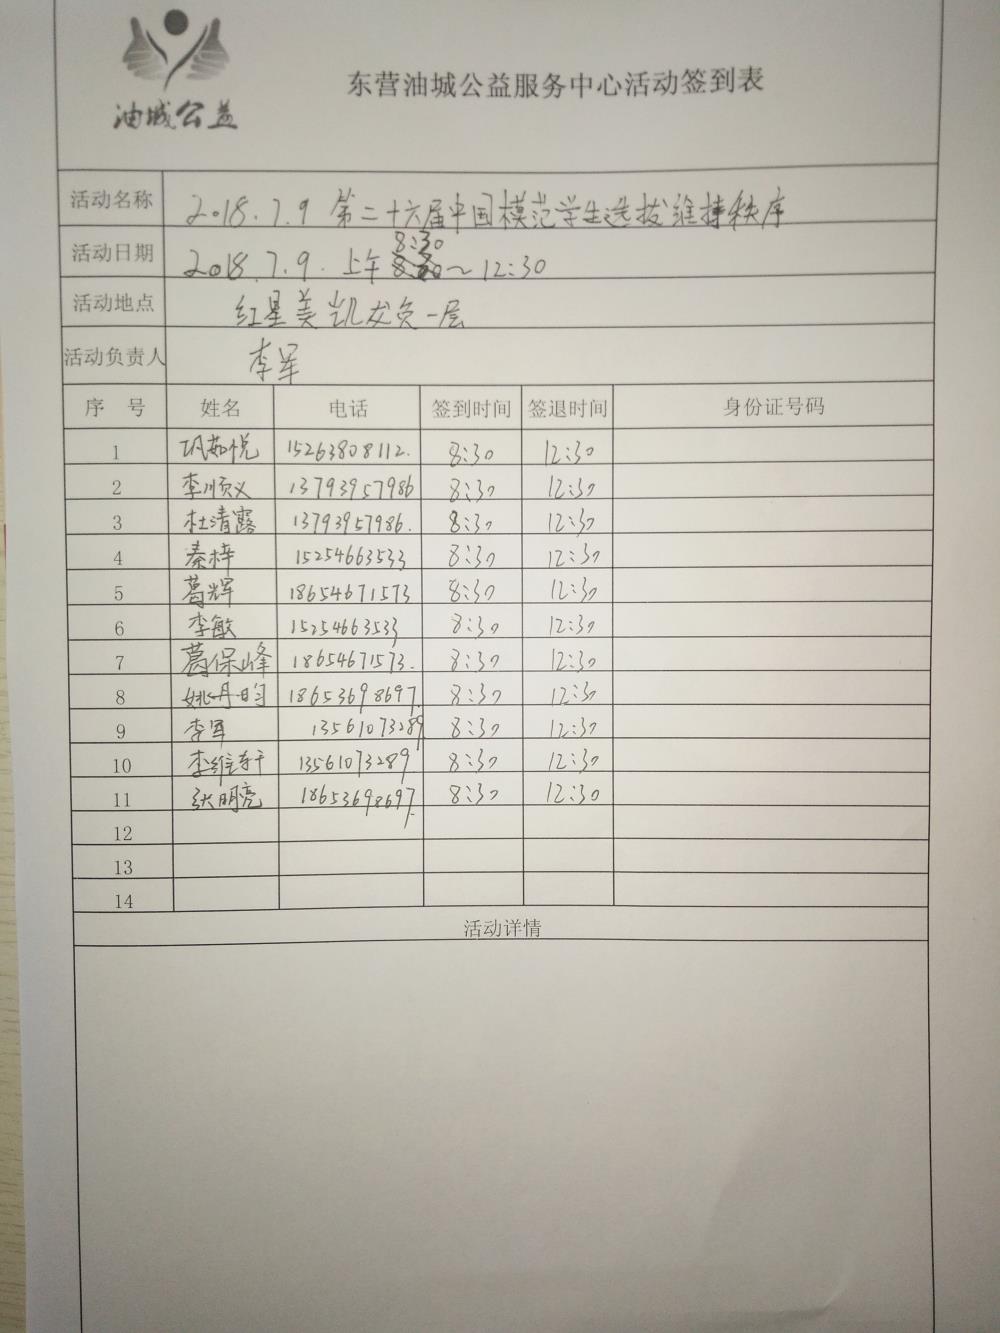 油城公益
东营油城公益服务中心活动签到表
活动名称 2018.7.9 第二十六届中国模范学生选拔维持秩序
8:30
活动日期 2018.7.9. 上午 ~12:30
活动地点 红星美凯龙负一层
活动负责人 李军
序 号 姓名 电话 签到时间 签退时间 身份证号码
1 巩茹悦 15263808112. 8:30 12:30
2 李顺义 13793957986 8:30 12:30
3 杜清露 13793957986. 8:30 12:30
4 秦梓 15254663533 8:30 12:30
5 葛辉 18654671573 8:30 12:30
6 李敏 15254663533 8:30 12:30
7 葛保峰 18654671573. 8:30 12:30
8 姚丹昀 18653698697. 8:30 12:30
9 李军 13561073289 8:30 12:30
10 李维轩 13561073289 8:30 12:30
11 张明亮 18653698697. 8:30 12:30
12
13
14
活动详情